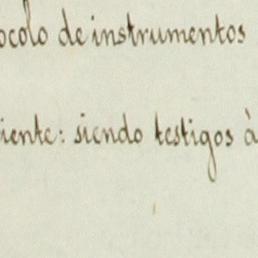 ocolo de instrumentos
iente: siendo testigos à